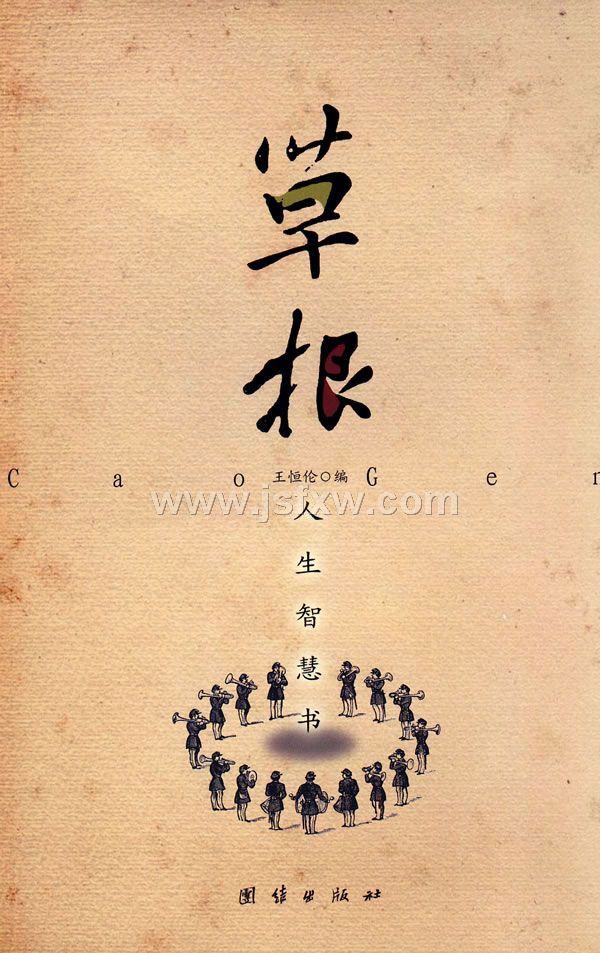 草根
Cao Gen
王恒伦○编
www.jsfxw.com
人生智慧书
團结出版社